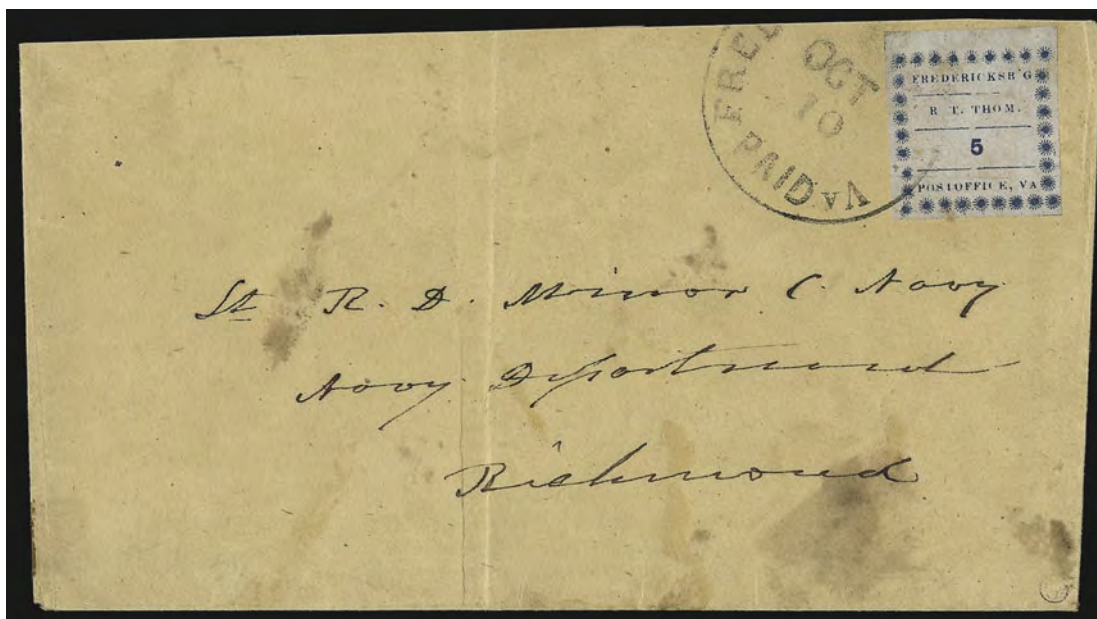 FRED
OCT
10
PAID VA
FREDERICKSB'G
R. T. THOM.
5
POSTOFFICE, VA
Lt R. D. Minor C. Navy
Navy Department
Richmond